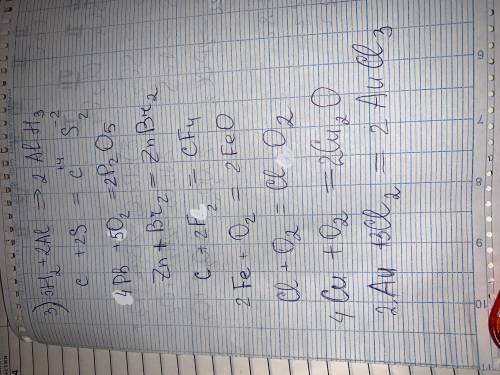 3) 3H2 + 2Al => 2AlH3
C + 2S = C+4 S-2 2
4Pb + 5O2 = 2P2O5
Zn + Br2 = ZnBr2
C + 2F2 = CF4
2Fe + O2 = 2FeO
Cl + O2 = ClO2
4Cu + O2 = 2Cu2O
2Au + 3Cl2 = 2AuCl3
6
7
8
9
10